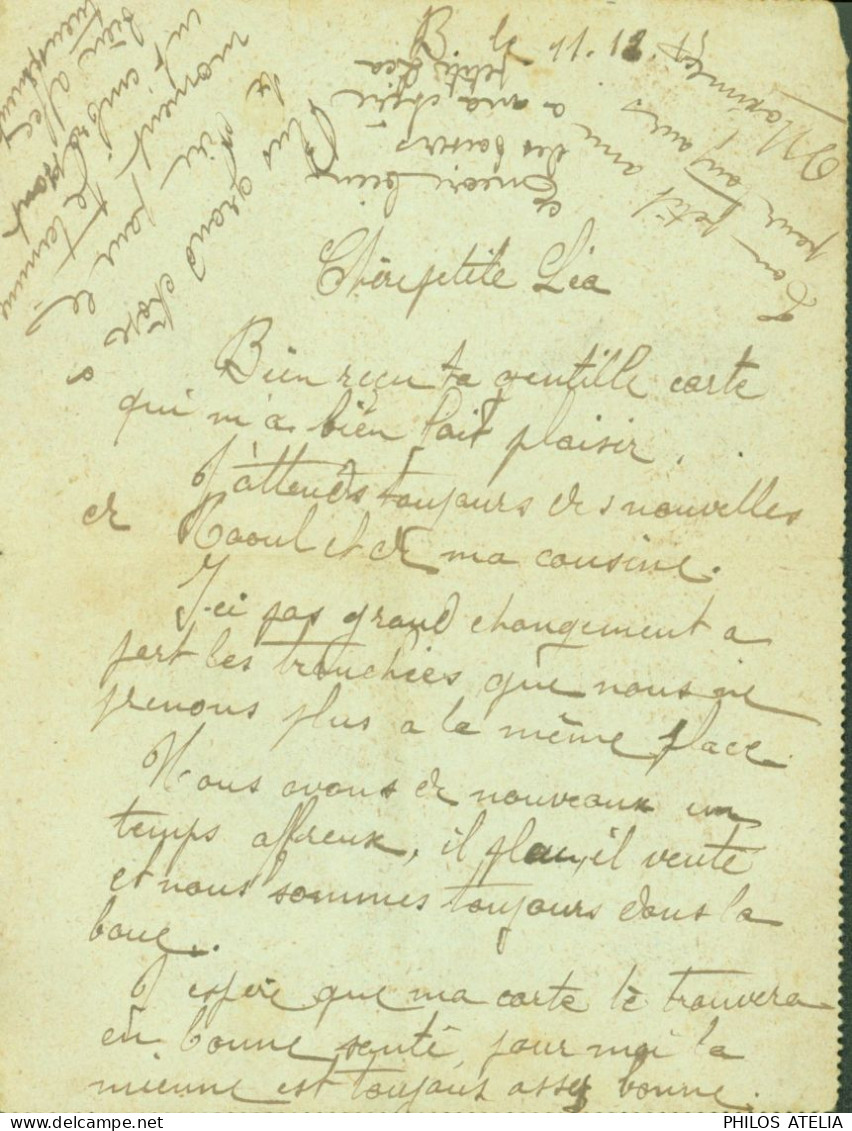 B. le 11.12.
Chère petite Léa
Bien reçu ta gentille carte
qui m'a bien fait plaisir.
J'attends toujours des nouvelles
de Raoul et de ma cousine.
Ici pas grand changement a
part les tranchées que nous ne
prenons plus a la même place.
Nous avons de nouveaux un
temps affreux, il pleu, il vente
et nous sommes toujours dans la
boue.
J'espère que ma carte te trouvera
en bonne santé, pour moi la
mienne est toujours assez bonne.
Plus grand chose a
te dire pour le
moment. Je termine
en t'embrassant
bien affec
tueusement
Ton petit ami
pour toujours
Maxime
Encore bien
des baisers
a ma chère
petite Léa
PHILOS ATELIA